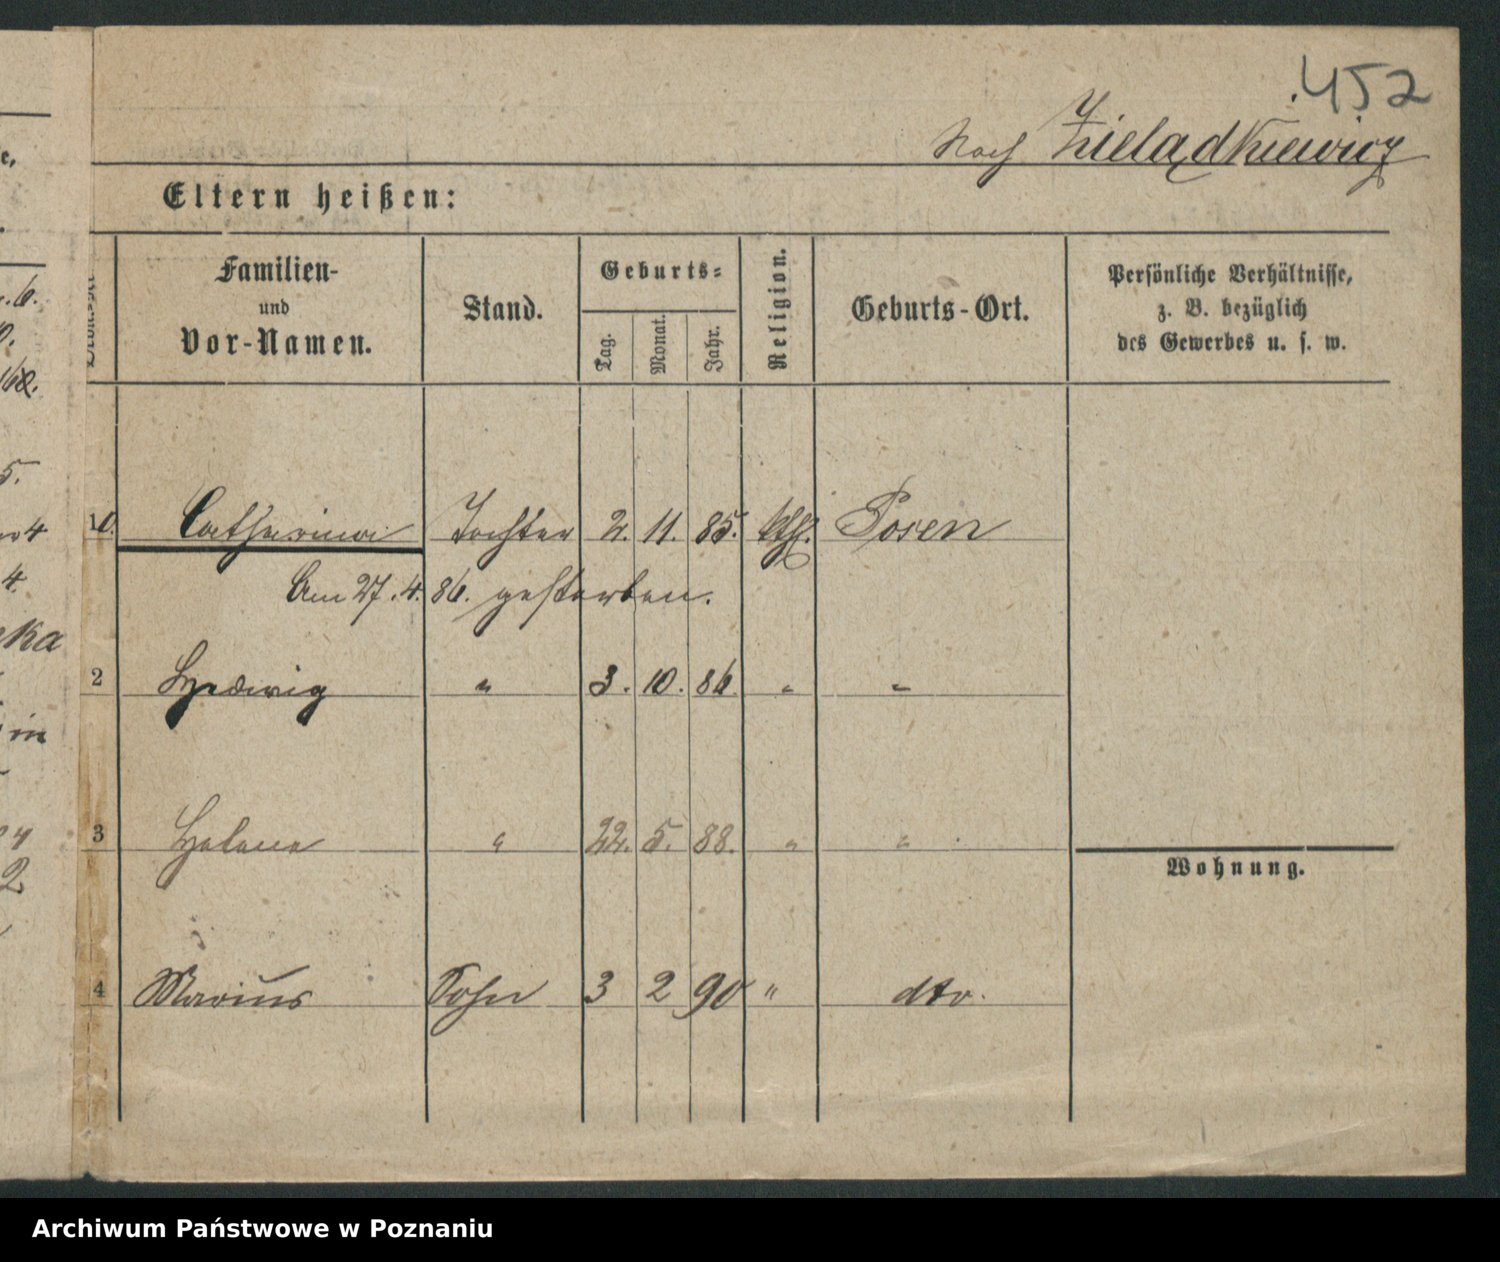 452
Noch Zielądkiewicz
Eltern heißen:
Familien-
und
Vor-Namen.
Stand.
Geburts-
Tag.
Monat.
Jahr.
Religion.
Geburts-Ort.
Persönliche Verhältnisse,
z. B. bezüglich
des Gewerbes u. s. w.
10. Catharina Tochter 2. 11. 85. kth. Posen
Am 27. 4. 86. gestorben.
2 Hedwig " 3. 10. 86. " "
3 Helene " 22. 5. 88. " "
Wohnung.
4 Marius Sohn 3 2 90 " dto.
e,
.6.
0.
5.
4
4.
ka
in
2
Archiwum Państwowe w Poznaniu